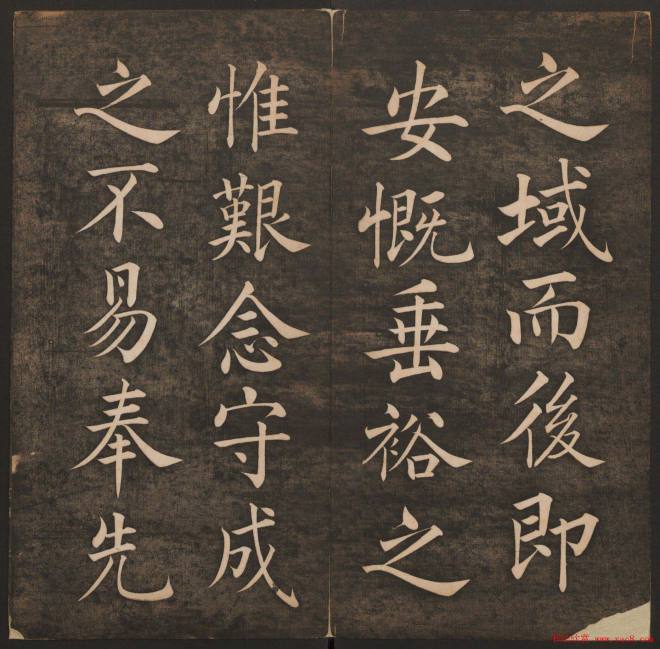 之域而後即
安慨垂裕之
惟艱念守成
之不易奉先